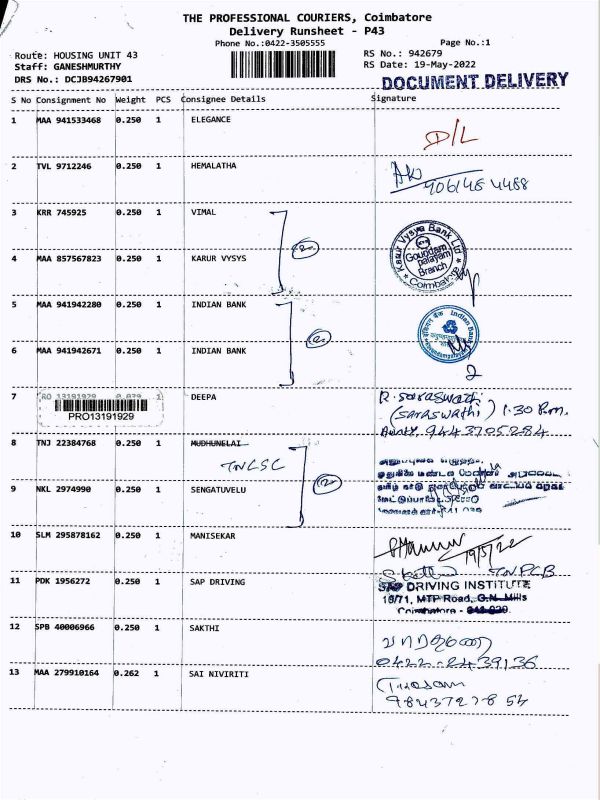 THE PROFESSIONAL COURIERS, Coimbatore
Delivery Runsheet - P43
Phone No.:0422-3505555
Page No.:1
Route: HOUSING UNIT 43
RS No.: 942679
Staff: GANESHMURTHY
RS Date: 19-May-2022
DRS No.: DCJB94267901
DOCUMENT DELIVERY
S No Consignment No Weight PCS Consignee Details Signature
1 MAA 941533468 0.250 1 ELEGANCE D/L
2 TVL 9712246 0.250 1 HEMALATHA
3 KRR 745925 0.250 1 VIMAL
Karur Vysya Bank Ltd
Goundampalayam
Branch
Coimbatore
4 MAA 857567823 0.250 1 KARUR VYSYS
5 MAA 941942280 0.250 1 INDIAN BANK
Indian Bank
6 MAA 941942671 0.250 1 INDIAN BANK
2
7 RO 13191929 0.029 1 DEEPA
PRO13191929
R. Saraswathi
(Saraswathi) 1.30 P.m.
Aunty 9443705284
8 TNJ 22384768 0.250 1 MUDHUNELAI
TNCSC
9 NKL 2974990 0.250 1 SENGATUVELU
10 SLM 295878162 0.250 1 MANISEKAR
19/5/22
TNPCB
11 PDK 1956272 0.250 1 SAP DRIVING
SAP DRIVING INSTITUTE
16/71, MTP Road, G.N. Mills
Coimbatore - 641 029.
12 SPB 40006966 0.250 1 SAKTHI
0422-2439136
13 MAA 279910164 0.262 1 SAI NIVIRITI
9843727854